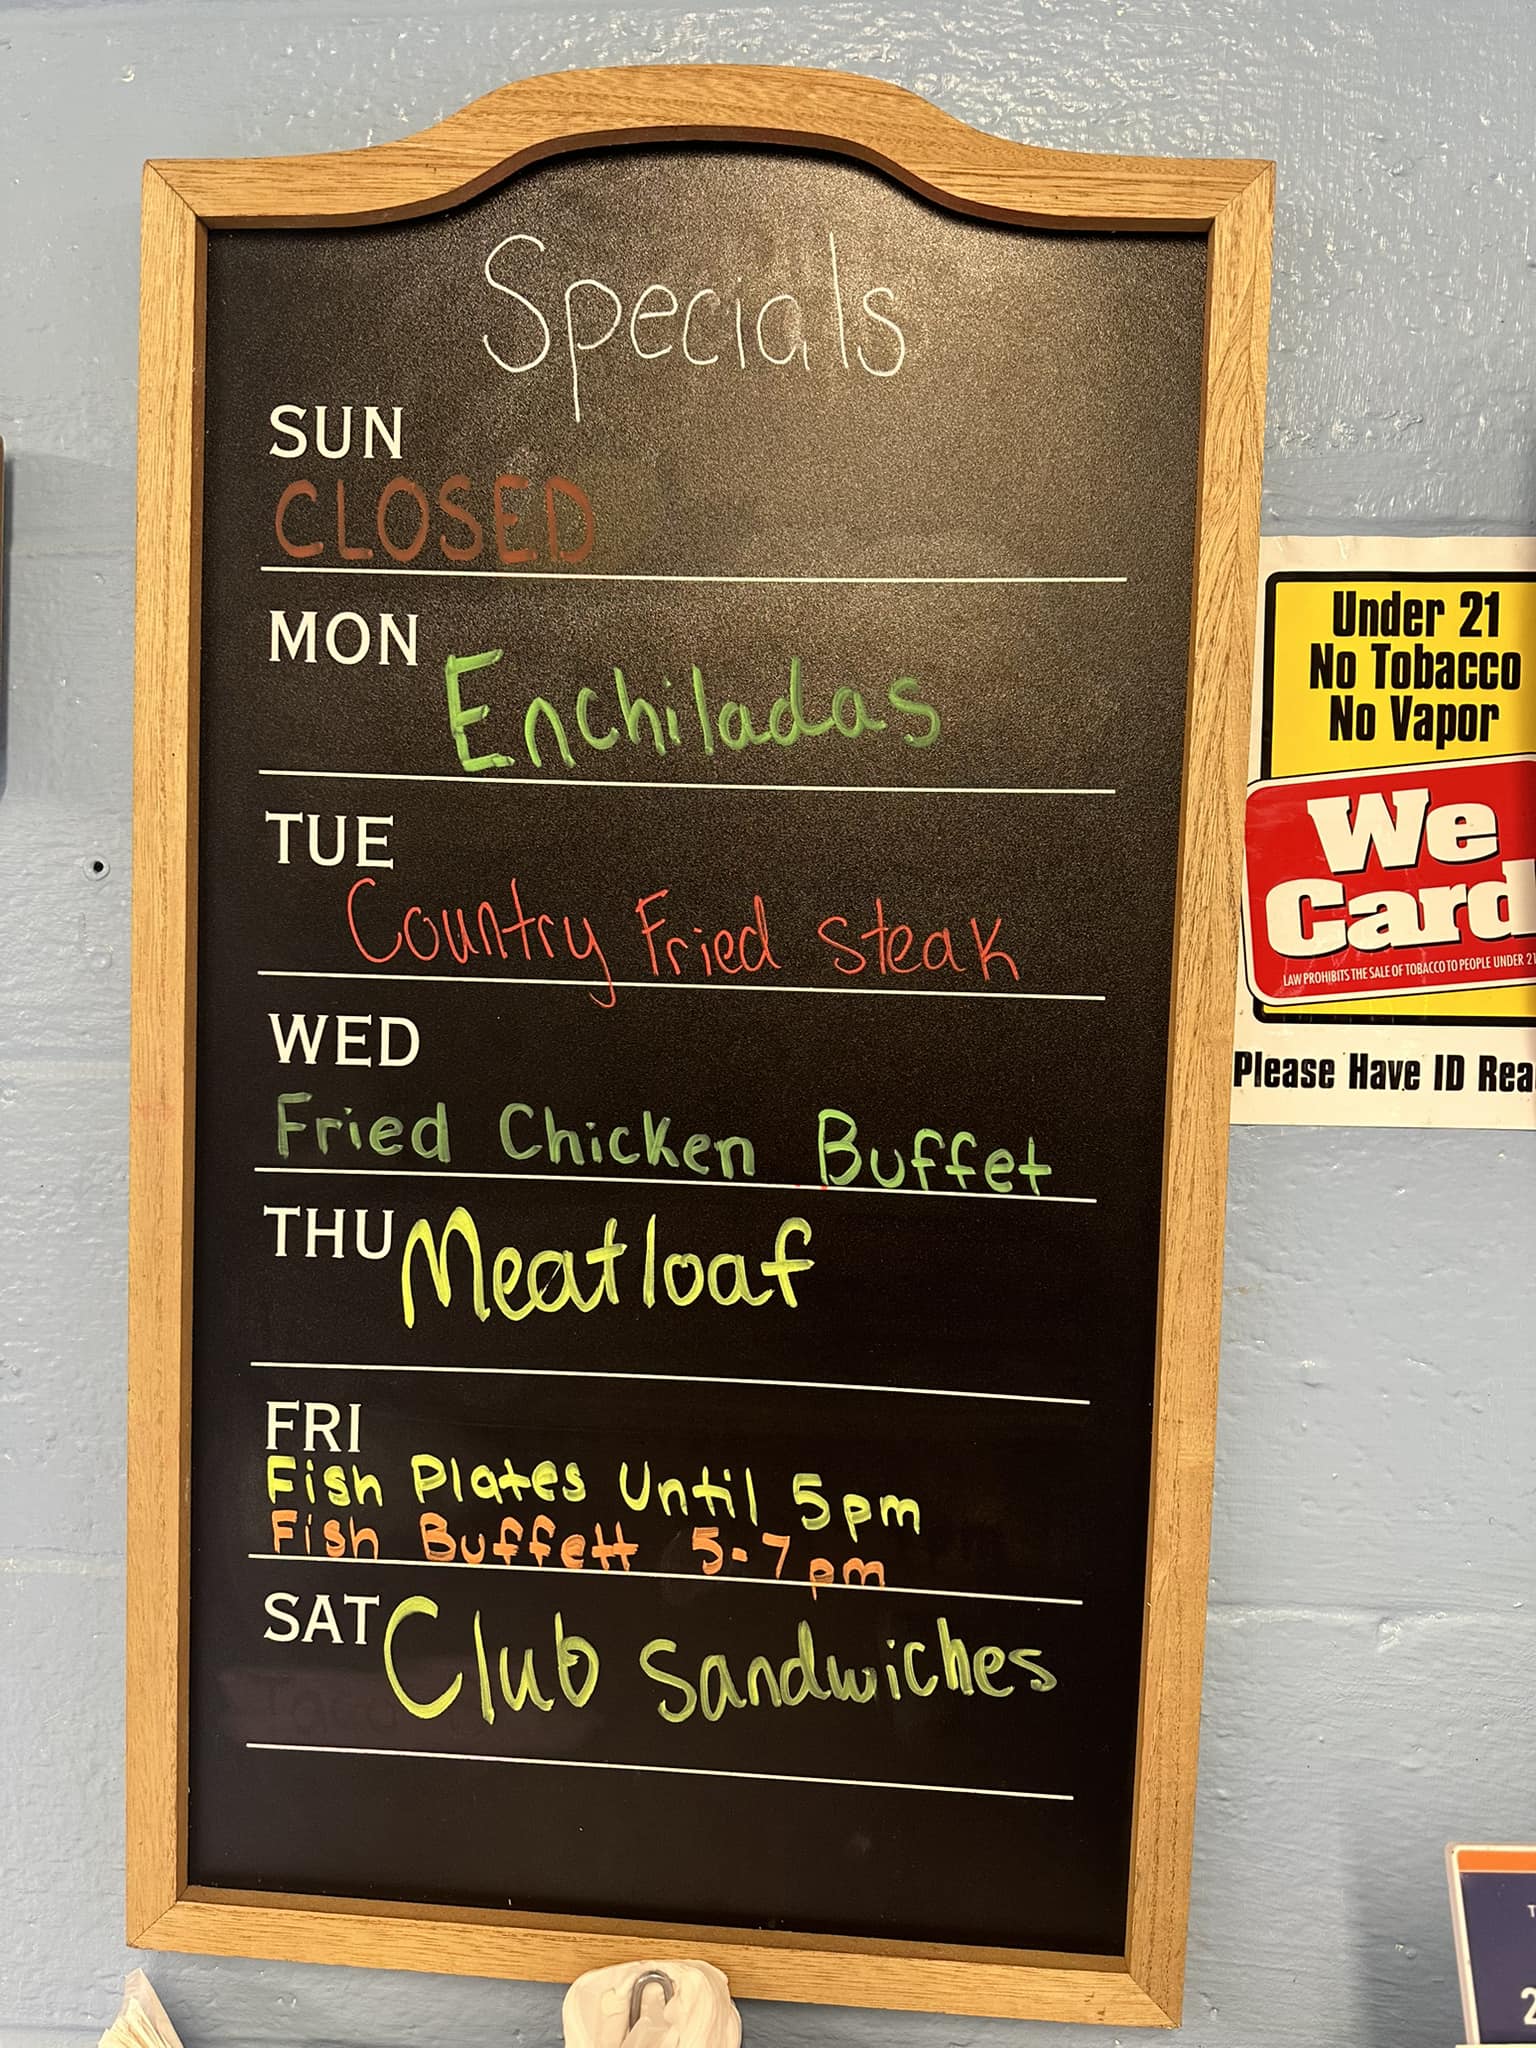 Specials
SUN
CLOSED
MON
Enchiladas
TUE
Country Fried Steak
WED
Fried Chicken Buffet
THU
Meatloaf
FRI
Fish Plates Until 5pm
Fish Buffett 5-7pm
SAT
Club Sandwiches
Under 21
No Tobacco
No Vapor
We
Card
LAW PROHIBITS THE SALE OF TOBACCO TO PEOPLE UNDER 21
Please Have ID Rea